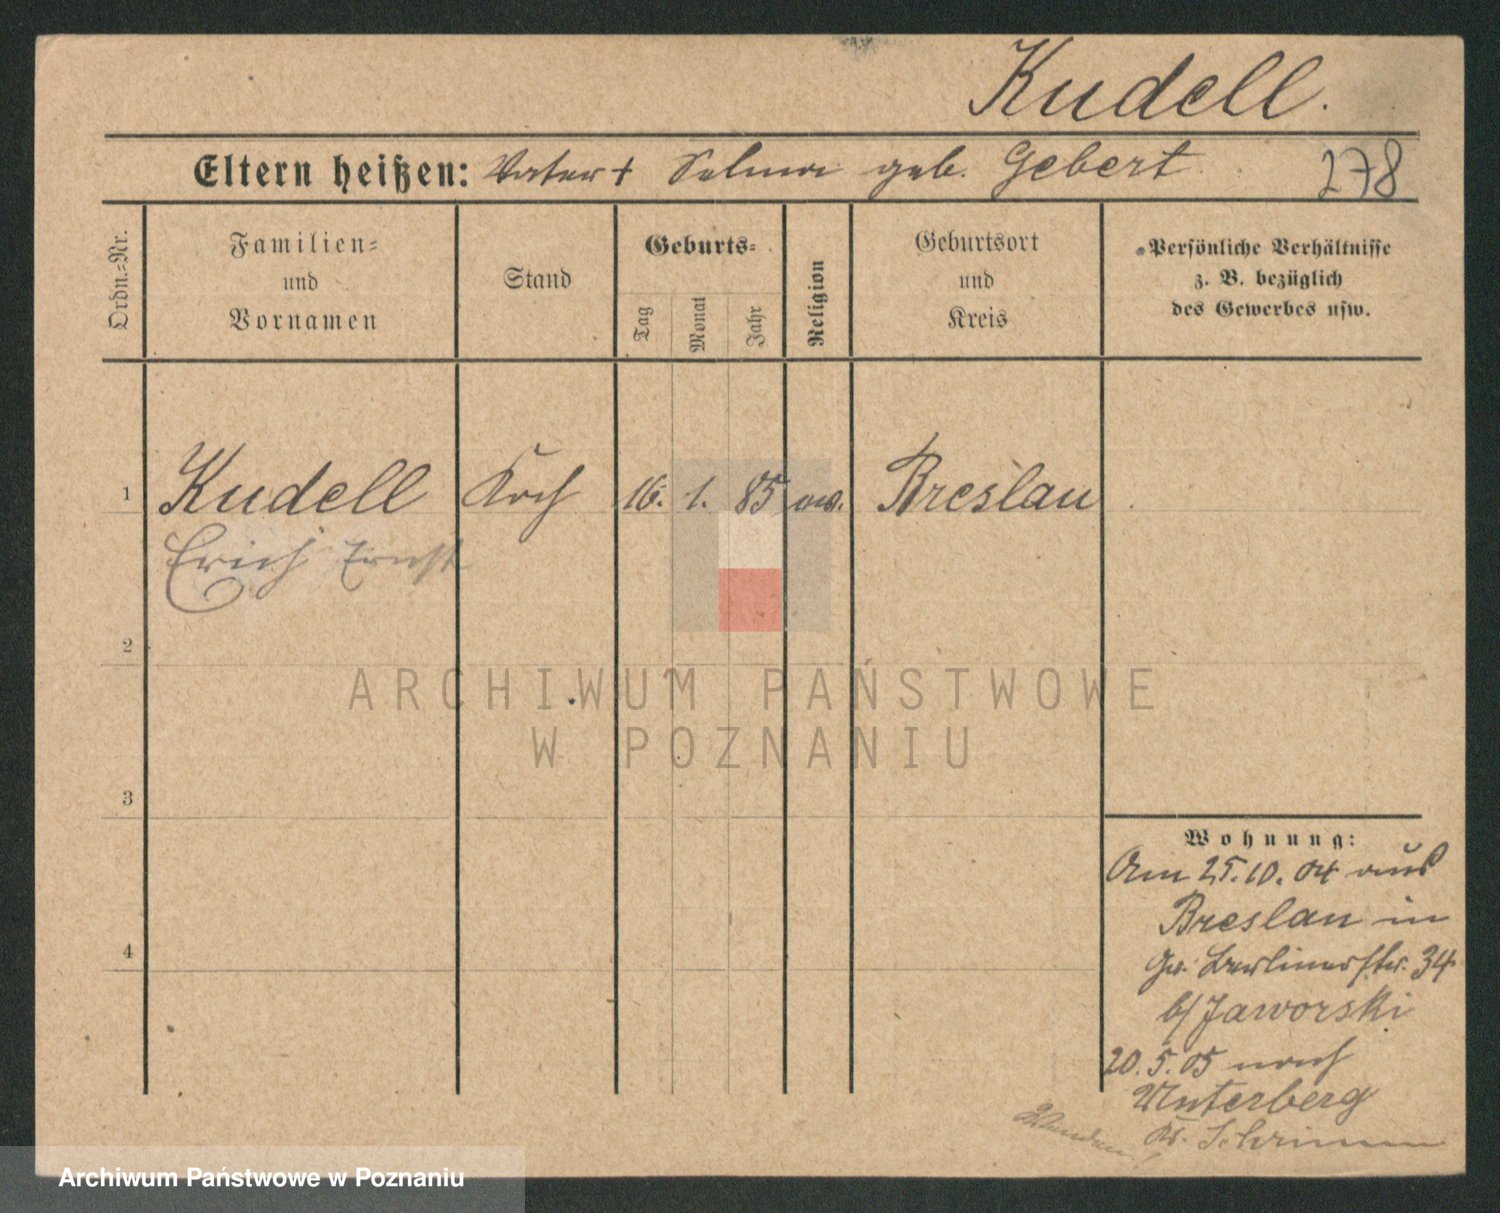 Kudell.
Eltern heißen: Vater † Selma geb. Gebert
278
Ordn.-Nr.
Familien-
und
Vornamen
Stand
Geburts-
Tag
Monat
Jahr
Religion
Geburtsort
und
Kreis
Persönliche Verhältnisse
z. B. bezüglich
des Gewerbes usw.
1 Kudell Koch 16. 1. 85 ev. Breslau
Erich Ernst
2
ARCHIWUM PAŃSTWOWE
W POZNANIU
3
Wohnung:
Am 25.10.04 aus
Breslau in
Gr. Berlinerstr. 34
b/ Jaworski
4
20.5.05 nach
Unterberg
Kr. Schrimm
Wenden!
Archiwum Państwowe w Poznaniu